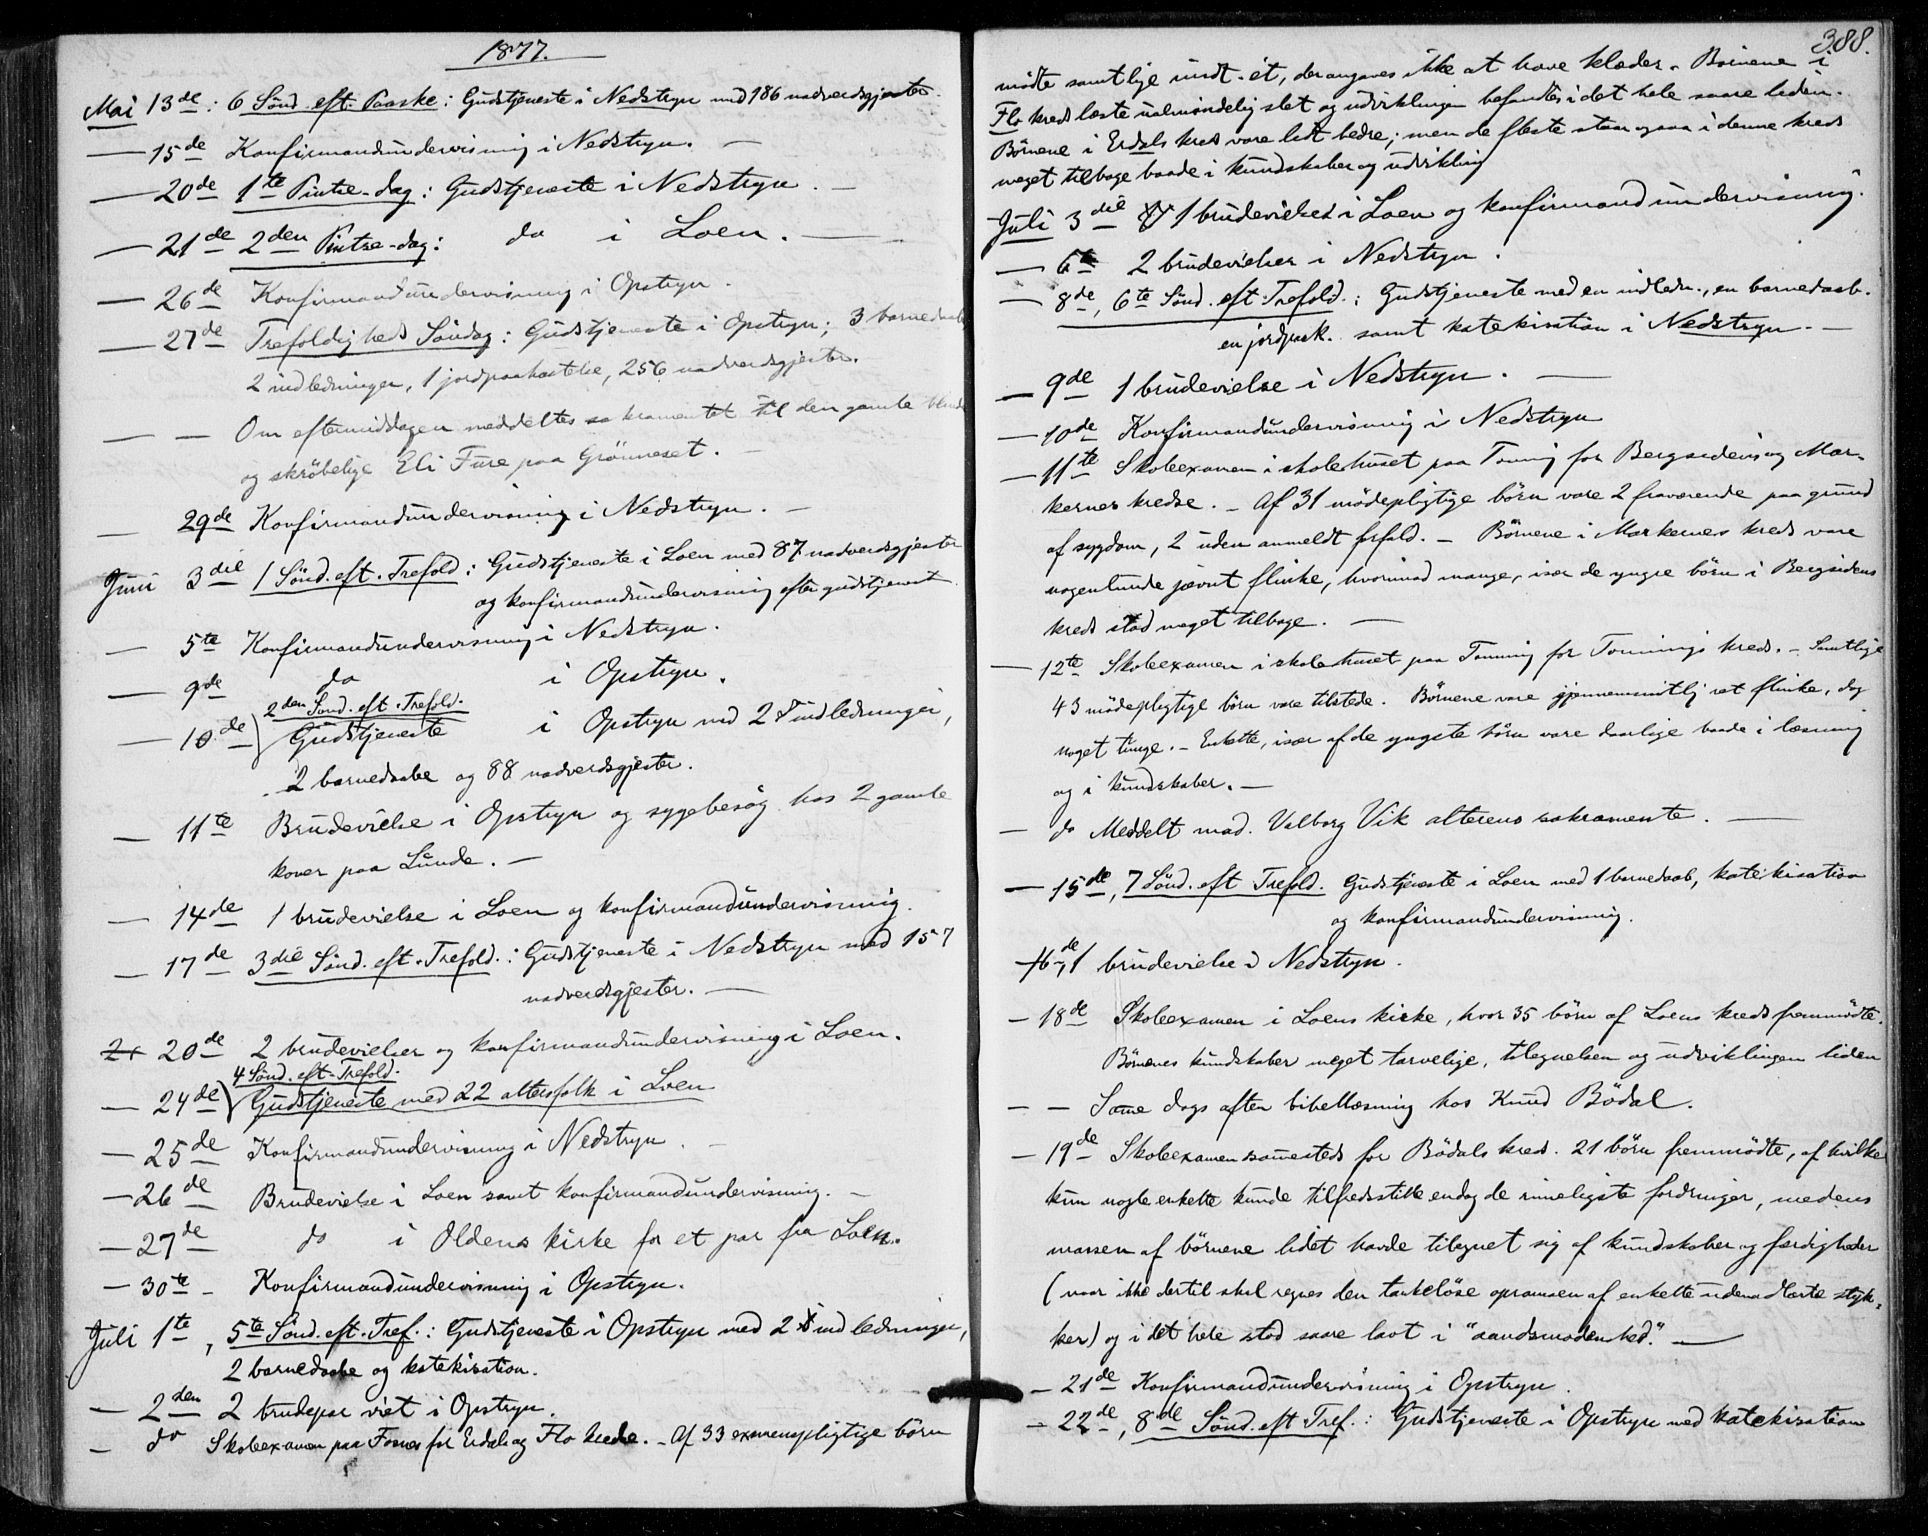 1877.
Mai 13de: 6 Sönd. eft. Paaske: Gudstjeneste i Nedstryn med 186 nadverdsgjester.
— 15de Konfirmandundervisning i Nedstryn. —
— 20de 1te Pintse-dag: Gudstjeneste i Nedstryn. —
— 21de 2den Pintse-dag: do i Loen. —
— 26de Konfirmandundervisning i Opstryn.
— 27de Trefoldigheds Söndag: Gudstjeneste i Opstryn; 3 barnedaabe
2 indledninger, 1 jordpaakastelse, 256 nadverdsgjester.
— — Om eftermiddagen meddeltes sakramentet til den gamle blinde
og skröbelige Eli Fure paa Grönneset. —
— 29de Konfirmandundervisning i Nedstryn. —
Juni 3die 1 Sönd. eft. Trefold: Gudstjeneste i Loen med 87 nadverdsgjester
og konfirmandundervisning efter gudstjenest
— 5te Konfirmandundervisning i Nedstryn.
— 9de do i Opstryn.
2den Sönd. eft. Trefold.
— 10de Gudstjeneste i Opstryn med 2 indledninger,
2 barnedaabe og 88 nadverdsgjester.
— 11te Brudevielse i Opstryn og sygebesög hos 2 gamle
koner paa Lunde. —
— 14de 1 brudevielse i Loen og konfirmandundervisning.
— 17de 3die Sönd. eft. Trefold.: Gudstjeneste i Nedstryn med 157
nadverdsgjester. —
20de 2 brudevielser og konfirmandundervisning i Loen.
4 Sönd. eft. Trefold.
— 24de Gudstjeneste med 22 altersfolk i Loen
— 25de Konfirmandundervisning i Nedstryn. —
— 26de Brudevielse i Loen samt konfirmandundervisning. —
— 27de do i Oldens kirke for et par fra Loen.
— 30te — Konfirmandundervisning i Opstryn.
Juli 1te, 5te Sönd. eft. Tref.: Gudstjeneste i Opstryn med 2 indledninger,
2 barnedaabe og katekisation.
— 2den 2 brudepar viet i Opstryn.
— do Skoleexamen paa Fosnes for Erdals og Flo kredse. — Af 33 examenspligtige börn
388.
mödte samtlige undt. ét, der angaves ikke at have klæder. Börnene i
Flo kreds læste ualmindelig slet og udviklingen befandtes i det hele saare liden.
Börnene i Erdals kreds vare lidt bedre; men de fleste staar ogsaa i denne kreds
meget tilbage baade i kundskaber og udvikling
Juli 3die 1 brudevielse i Loen og konfirmandundervisning.
— 6te 2 brudevielser i Nedstryn.
— 8de, 6te Sönd. eft. Trefold.: Gudstjeneste med en indledn., en barnedaab.
en jordpaak. samt katekisation i Nedstryn. —
— 9de 1 brudevielse i Nedstryn. —
— 10de Konfirmandundervisning i Nedstryn
— 11te Skoleexamen i skolehuset paa Tonning for Bergsidens og Mar-
kernes kredse. — Af 31 mödepligtige börn vare 2 fraværende paa grund
af sygdom, 2 uden anmeldt forfald. — Börnene i Markernes kreds vare
nogenlunde jævnt flinke, hvorimod mange, især de yngre börn i Bergsidens
kreds stod meget tilbage. —
— 12te Skoleexamen i skolehuset paa Tonning for Tonnings kreds. — Samtlige
43 mödepligtige börn vare tilstede. Börnene vare gjennemsnitlig ret flinke, dog
noget tunge. — Enkelte, især af de yngste börn vare daarlige baade i læsning
og i kundskaber. —
— do Meddelt mad. Valborg Vik alterens sakramente. —
— 15de, 7 Sönd. eft Trefold. Gudstjeneste i Loen med 1 barnedaab, katekisation
og konfirmandundervisning.
16de, 1 brudevielse i Nedstryn.
— 18de Skoleexamen i Loens kirke, hvor 35 börn af Loens kreds fremmödte.
Börnenes kundskaber meget tarvelige, tilegnelsen og udviklingen liden
— — Same dags aften bibellæsning hos Knud Bödal.
— 19de Skoleexamen samesteds for Bödals kreds. 21 börn fremmödte, af hvilke
kun nogle enkelte kunde tilfredsstille endog de rimeligste fordringer, medens
massen af börnene lidet havde tilegnet sig af kundskaber og færdigheder
(naar ikke dertil skal regnes den tankelöse opramsen af enkelte udenadlærte styk-
ker) og i det hele stod saare lavt i "aandsmodenhed." —
— 21de Konfirmandundervisning i Opstryn.
— 22de, 8de Sönd. eft Tref.: Gudstjeneste i Opstryn med katekisation